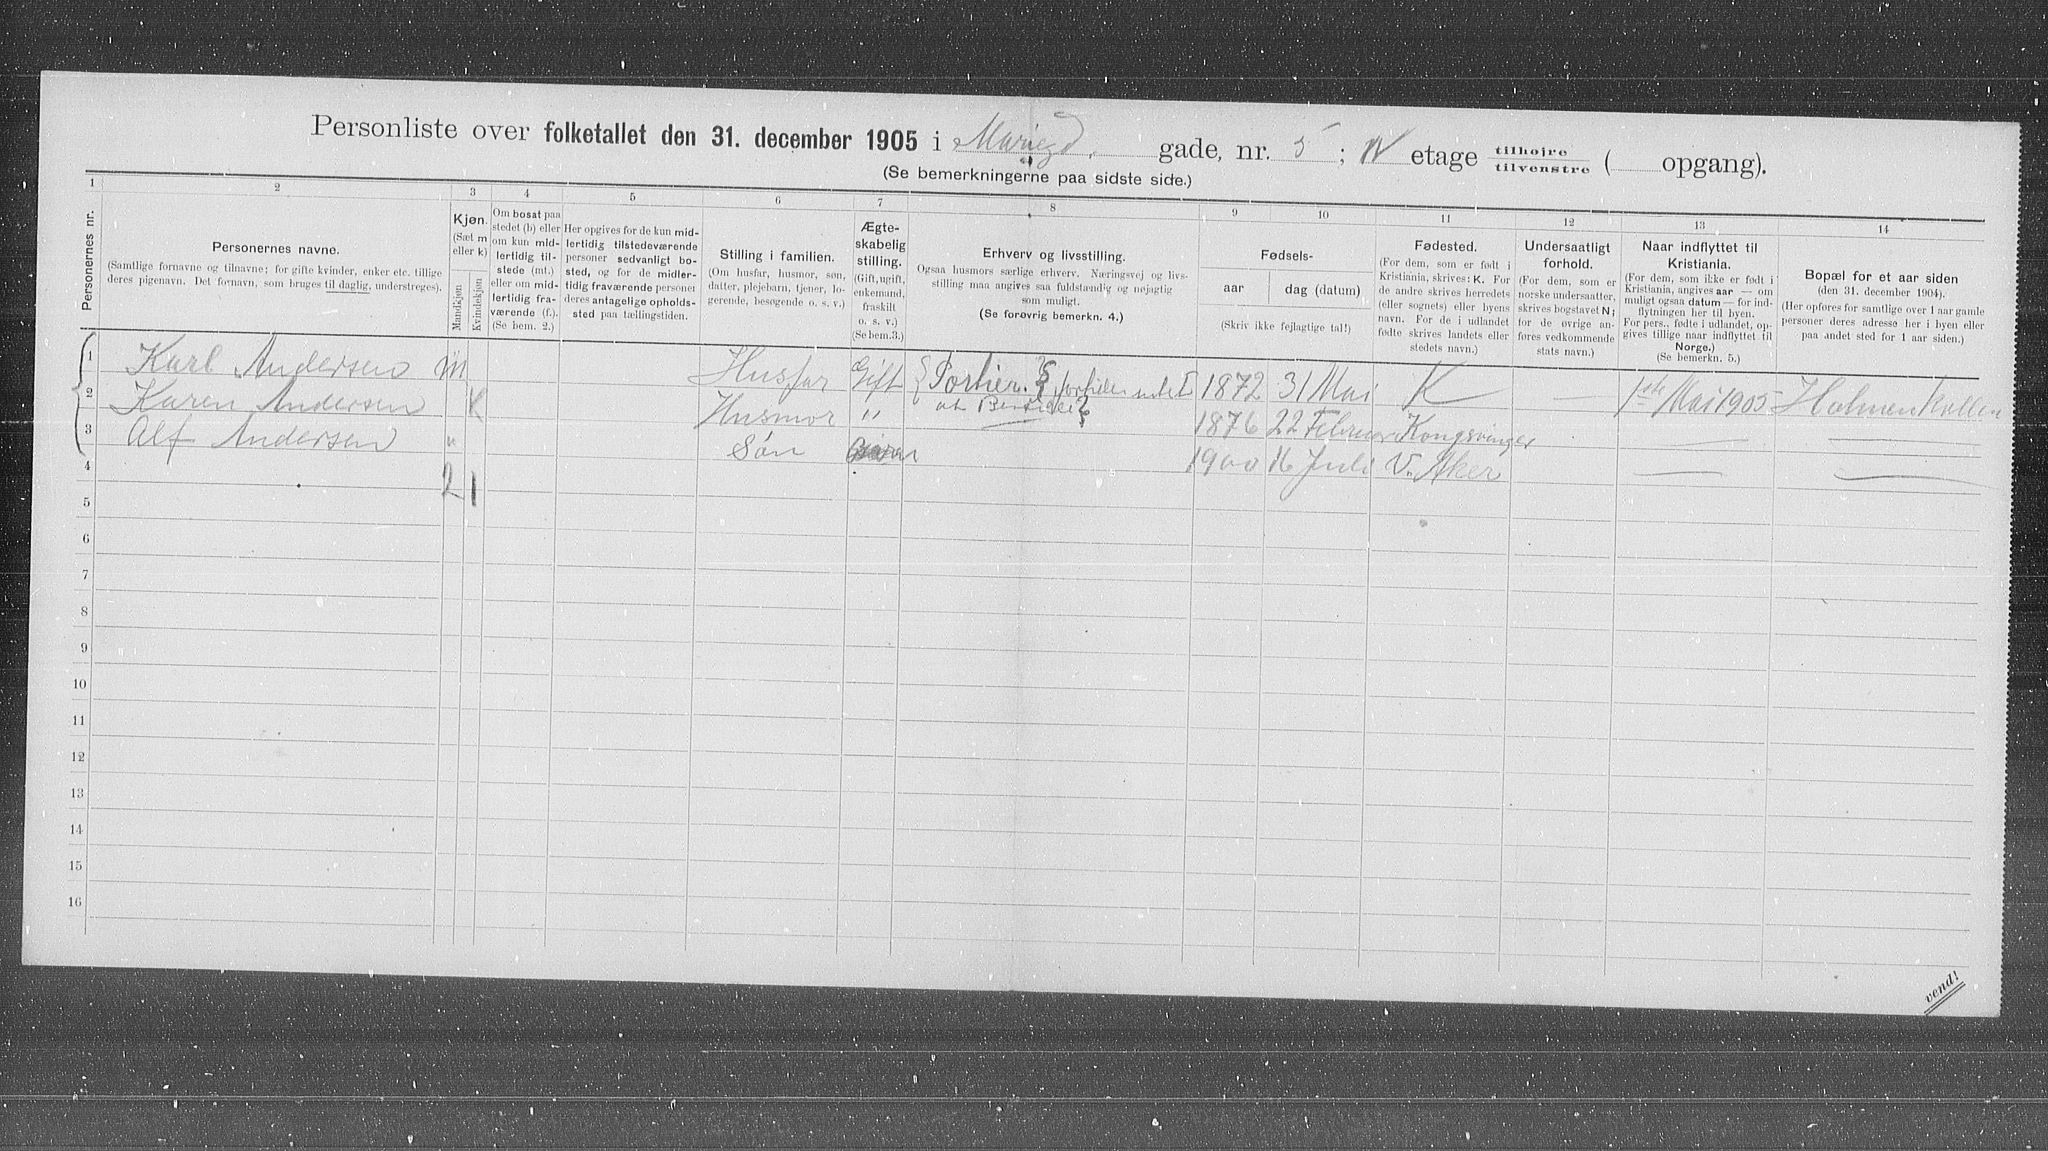 Personliste over folketallet den 31. december 1905 i Mariegd. gade, nr. 5 ; IV etage tilhøjre / tilvenstre ( opgang).
(Se bemerkningerne paa sidste side.)
1 2 3 4 5 6 7 8 9 10 11 12 13 14
Personernes nr.
Personernes navne.
(Samtlige fornavne og tilnavne; for gifte kvinder, enker etc. tillige
deres pigenavn. Det fornavn, som bruges til daglig, understreges).
Kjøn.
(Sæt m
eller k)
Mandkjøn
Kvindekjøn
Om bosat paa
stedet (b) eller
om kun mid-
lertidig til-
stede (mt.)
eller om mid-
lertidig fra-
værende (f.).
(Se bem. 2.)
Her opgives for de kun mid-
lertidig tilstedeværende
personer sedvanlig bo-
sted, og for de midler-
tidig fraværende personer
deres antagelige opholds-
sted paa tællingstiden.
Stilling i familien.
(Om husfar, husmor, søn,
datter, plejebarn, tjener, lo-
gerende, besøgende o. s. v.)
Ægte-
skabelig
stilling.
(Gift, ugift,
enkemand,
fraskilt
o. s. v.)
(Se bem.3.)
Erhverv og livsstilling.
Ogsaa husmors særlige erhverv. Næringsvej og livs-
stilling maa angives saa fuldstændig og nøjagtig
som muligt.
(Se forøvrig bemerkn. 4.)
Fødsels-
aar
dag (datum)
(Skriv ikke fejlagtige tal!)
Fødested.
(For dem, som er født i
Kristiania, skrives: K. For
de andre skrives herredets
(eller sognets) eller byens
navn. For de i udlandet
fødte skrives landets eller
stedets navn.)
Undersaatligt
forhold.
(For dem, som er
norske undersaatter,
skrives bogstavet N;
for de øvrige an-
føres vedkommende
stats navn.)
Naar indflyttet til
Kristiania.
(For dem, som ikke er født i
Kristiania, angives aar — om
muligt ogsaa datum — for ind-
flytningen her til byen.
For pers., fødte i udlandet, op-
gives tillige naar indflyttet til
Norge.)
(Se bemerkn. 5.)
Bopæl for et aar siden
(den 31. december 1904).
(Her opføres for samtlige over 1 aar gamle
personer deres adresse her i byen eller
paa andet sted for 1 aar siden.)
1 Karl Andersen m Husfar Gift Portier. 1872 31 Mai K 1ste Mai 1905 Holmenkollen
2 Karen Andersen K Husmor " 1876 22 Februar Kongsvinger
3 Alf Andersen " Søn 1900 16 Juli V. Aker
4 2 1
5
6
7
8
9
10
11
12
13
14
15
16
vend!